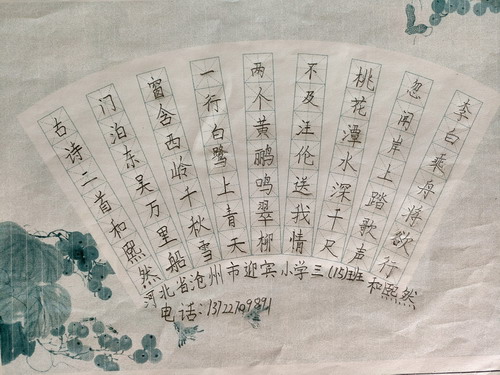 李白乘舟将欲行
忽闻岸上踏歌声
桃花潭水深千尺
不及汪伦送我情
两个黄鹂鸣翠柳
一行白鹭上青天
窗含西岭千秋雪
门泊东吴万里船
古诗二首和熙然
河北省沧州市迎宾小学三(15)班 和熙然
电话: